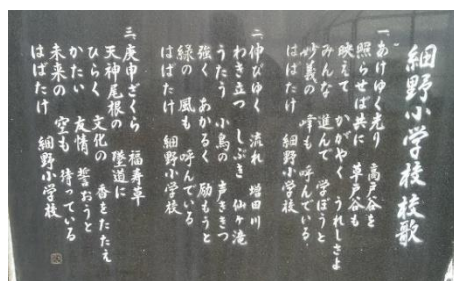 細野小学校校歌
一、あけゆく光り 高戸谷を
照らせば共に 草戸谷も
映えて かがやく うれしさよ
みんな 進んで 学ぼうと
妙義の 峰も 呼んでいる
はばたけ 細野小学校
二、伸びゆく 流れ 増田川
わき立つ しぶき 仙ヶ滝
うたう 小鳥の 声ききつ
強く あかるく 励もうと
緑の 風も 呼んでいる
はばたけ 細野小学校
三、庚申ざくら 福寿草
天神尾根の 墜道に
ひらく 文化の 香をたたえ
かたい 友情 誓おうと
未来の 空も 待っている
はばたけ 細野小学校